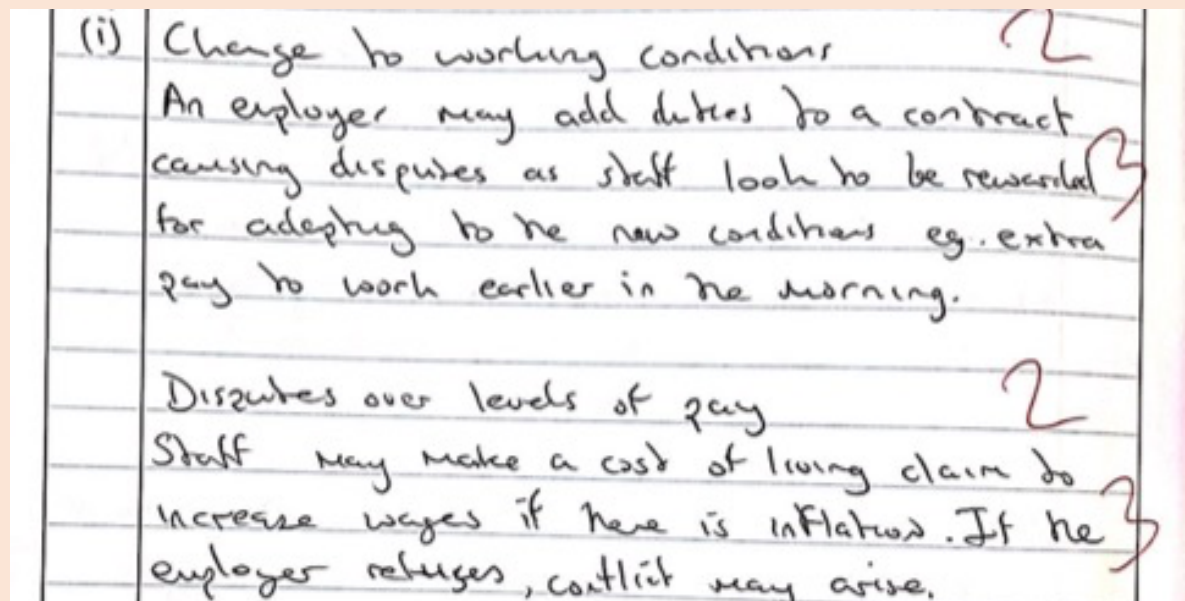 (i) Change to working conditions 2
An employer may add duties to a contract
causing disputes as staff look to be rewarded 3
for adapting to the new conditions eg. extra
pay to work earlier in the morning.
Disputes over levels of pay 2
Staff may make a cost of living claim to
increase wages if there is inflation. If the 3
employer refuses, conflict may arise.